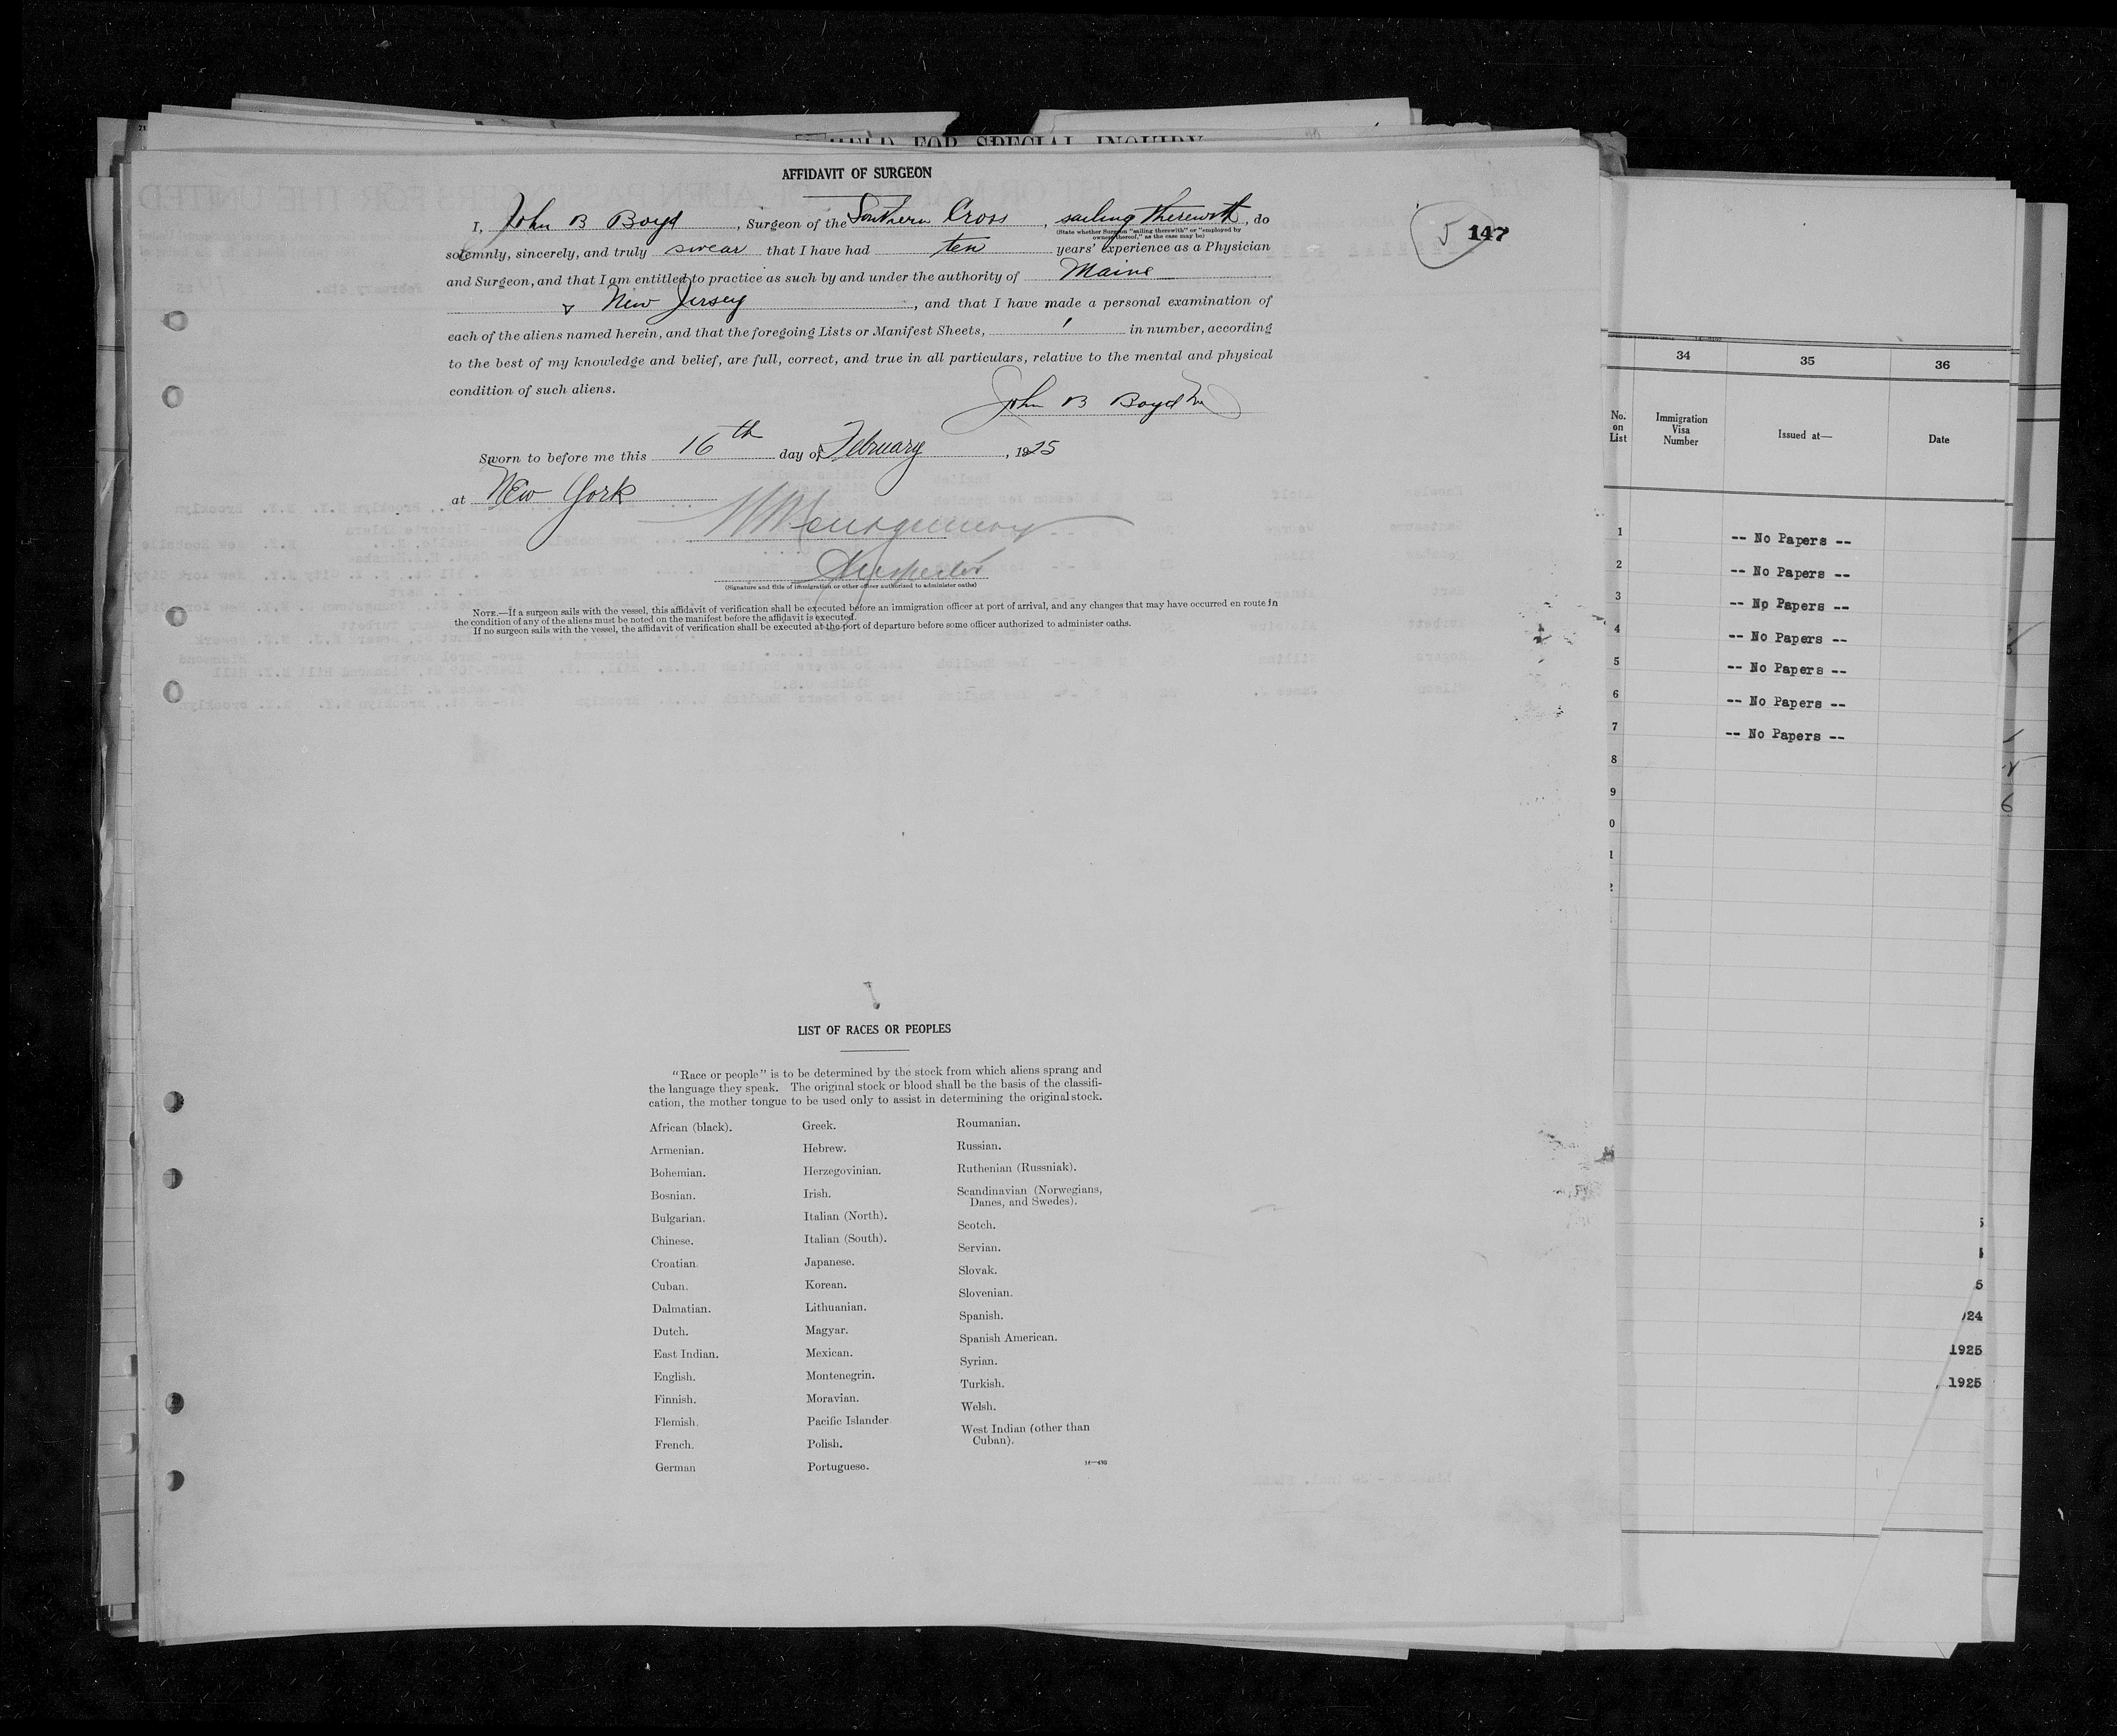 HELD FOR SPECIAL INQUIRY
AFFIDAVIT OF SURGEON
I, John B Boyd, Surgeon of the Southern Cross, sailing therewith, do
(State whether Surgeon "sailing therewith" or "employed by
owners thereof," as the case may be)
solemnly, sincerely, and truly swear that I have had ten years' experience as a Physician
and Surgeon, and that I am entitled to practice as such by and under the authority of Maine
& New Jersey, and that I have made a personal examination of
each of the aliens named herein, and that the foregoing Lists or Manifest Sheets, 1 in number, according
to the best of my knowledge and belief, are full, correct, and true in all particulars, relative to the mental and physical
condition of such aliens.
John B Boyd
Sworn to before me this 16th day of February, 1925
at New York
Montgomery
Inspector
(Signature and title of immigration or other officer authorized to administer oaths)
NOTE.—If a surgeon sails with the vessel, this affidavit of verification shall be executed before an immigration officer at port of arrival, and any changes that may have occurred en route in
the condition of any of the aliens must be noted on the manifest before the affidavit is executed.
If no surgeon sails with the vessel, the affidavit of verification shall be executed at the port of departure before some officer authorized to administer oaths.
5 147
LIST OF RACES OR PEOPLES
"Race or people" is to be determined by the stock from which aliens sprang and
the language they speak. The original stock or blood shall be the basis of the classifi-
cation, the mother tongue to be used only to assist in determining the original stock.
African (black).
Armenian.
Bohemian.
Bosnian.
Bulgarian.
Chinese.
Croatian.
Cuban.
Dalmatian.
Dutch.
East Indian.
English.
Finnish.
Flemish.
French.
German
Greek.
Hebrew.
Herzegovinian.
Irish.
Italian (North).
Italian (South).
Japanese.
Korean.
Lithuanian.
Magyar.
Mexican.
Montenegrin.
Moravian.
Pacific Islander
Polish.
Portuguese.
Roumanian.
Russian.
Ruthenian (Russniak).
Scandinavian (Norwegians,
Danes, and Swedes).
Scotch.
Servian.
Slovak.
Slovenian.
Spanish.
Spanish American.
Syrian.
Turkish.
Welsh.
West Indian (other than
Cuban).
34 35 36
No.
on
List
Immigration
Visa
Number
Issued at—
Date
1 -- No Papers --
2 -- No Papers --
3 -- No Papers --
4 -- No Papers --
5 -- No Papers --
6 -- No Papers --
7 -- No Papers --
8
9
0
1
5
24
1925
, 1925